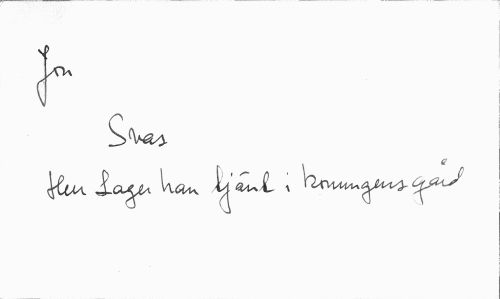 Jon
Svas
Herr Lager han tjänt i konungens gård